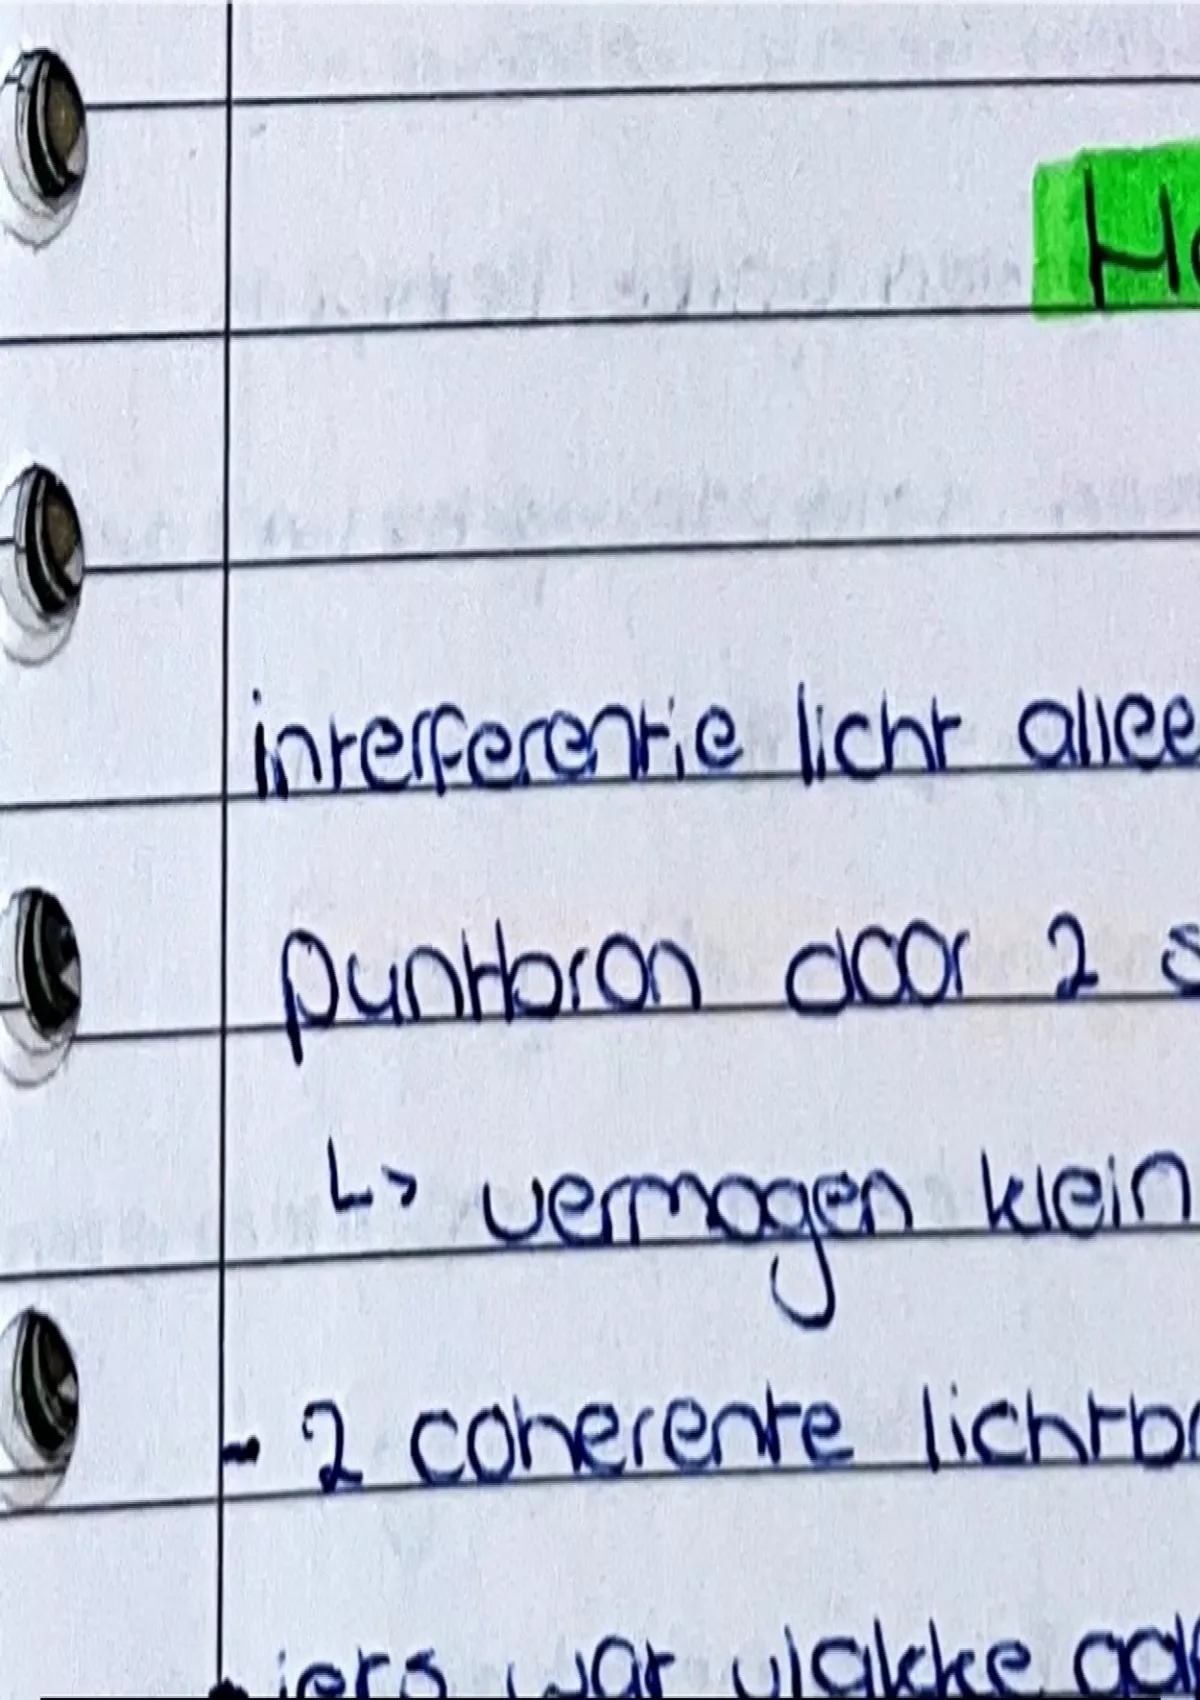 H
interferentie licht allee
puntbron door 2 s
↳ vermogen klein
- 2 coherente lichtbr
iets wat vlakke golf